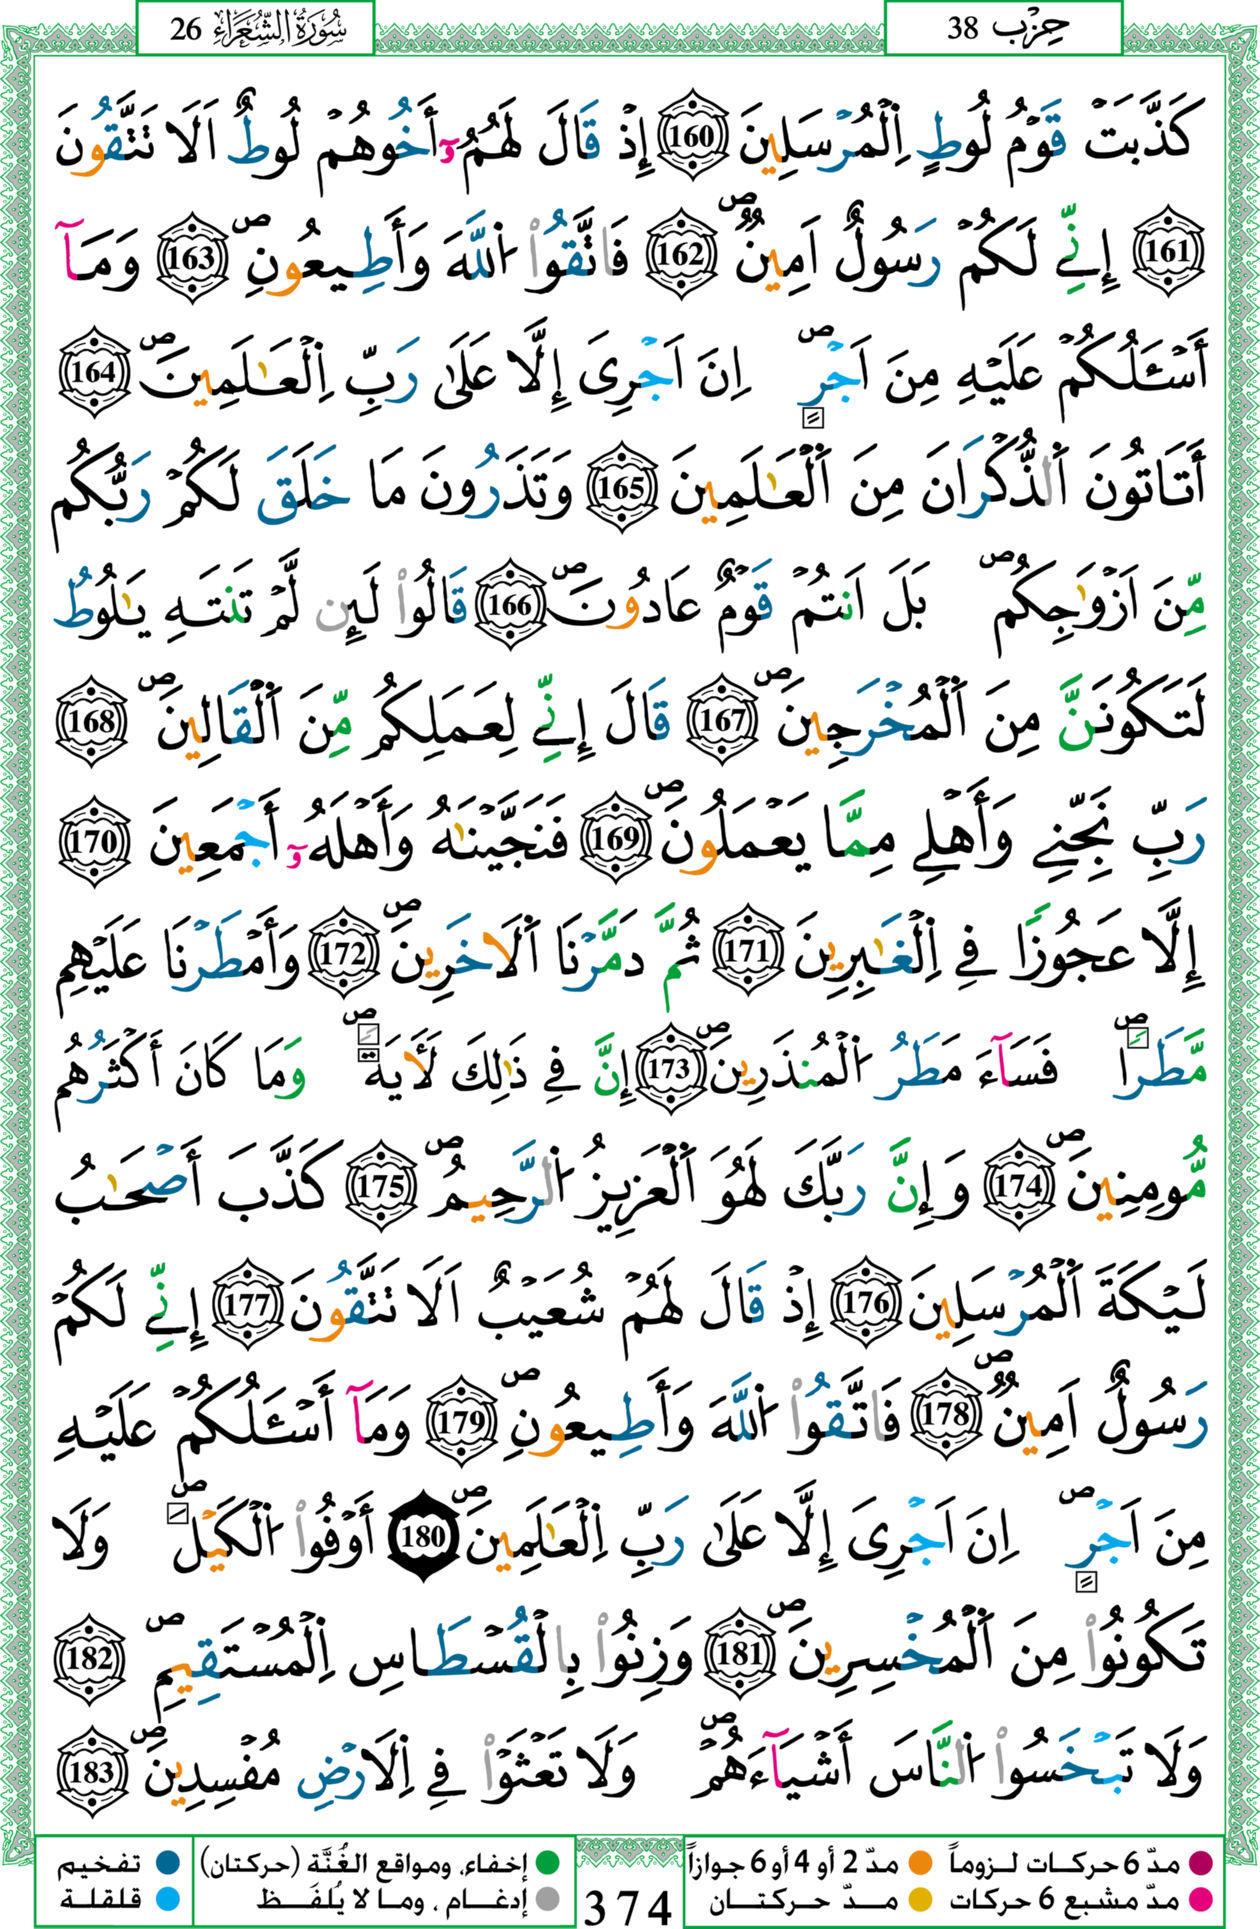 حِزْب 38
سُورَةُ الشُّعَرَاء 26
كَذَّبَتْ قَوْمُ لُوطٍ اِ۬لْمُرْسَلِينَ 160 إِذْ قَالَ لَهُمُۥٓ أَخُوهُمْ لُوطٌ اَلَا تَتَّقُونَ
161 إِنِّے لَكُمْ رَسُولٌ اَمِينٌ ص 162 فَاتَّقُوا۟ اُ۬للَّهَ وَأَطِيعُونِ ص 163 وَمَآ
أَسْـَٔلُكُمْ عَلَيْهِ مِنَ اَجْرٍ ص اِنَ اَجْرِىَ إِلَّا عَلَىٰ رَبِّ اِ۬لْعَـٰلَمِينَ ص 164
أَتَاتُونَ اَ۬لذُّكْرَانَ مِنَ اَ۬لْعَـٰلَمِينَ 165 وَتَذَرُونَ مَا خَلَقَ لَكُمْ رَبُّكُم
مِّنَ اَزْوَٰجِكُم ص بَلَ اَنتُمْ قَوْمٌ عَادُونَ ص 166 قَالُوا۟ لَئِن لَّمْ تَنتَهِ يَـٰلُوطُ
لَتَكُونَنَّ مِنَ اَ۬لْمُخْرَجِينَ ص 167 قَالَ إِنِّے لِعَمَلِكُم مِّنَ اَ۬لْقَالِينَ ص 168
رَبِّ نَجِّنِے وَأَهْلِے مِمَّا يَعْمَلُونَ ص 169 فَنَجَّيْنَـٰهُ وَأَهْلَهُۥٓ أَجْمَعِينَ 170
إِلَّا عَجُوزًا فِے اِ۬لْغَـٰبِرِينَ 171 ثُمَّ دَمَّرْنَا اَ۬لَاخَرِينَ ص 172 وَأَمْطَرْنَا عَلَيْهِم
مَّطَرًا ص فَسَآءَ مَطَرُ اُ۬لْمُنذَرِينَ ص 173 إِنَّ فِے ذَٰلِكَ لَأٓيَةً ص وَمَا كَانَ أَكْثَرُهُم
مُّومِنِينَ ص 174 وَإِنَّ رَبَّكَ لَهُوَ اَ۬لْعَزِيزُ اُ۬لرَّحِيمُ ص 175 كَذَّبَ أَصْحَـٰبُ
لَيْكَةَ اَ۬لْمُرْسَلِينَ 176 إِذْ قَالَ لَهُمْ شُعَيْبٌ اَلَا تَتَّقُونَ 177 إِنِّے لَكُمْ
رَسُولٌ اَمِينٌ ص 178 فَاتَّقُوا۟ اُ۬للَّهَ وَأَطِيعُونِ ص 179 وَمَآ أَسْـَٔلُكُمْ عَلَيْهِ
مِنَ اَجْرٍ ص اِنَ اَجْرِىَ إِلَّا عَلَىٰ رَبِّ اِ۬لْعَـٰلَمِينَ ص 180 أَوْفُوا۟ اُ۬لْكَيْلَ ص وَلَا
تَكُونُوا۟ مِنَ اَ۬لْمُخْسِرِينَ ص 181 وَزِنُوا۟ بِالْقُسْطَاسِ اِ۬لْمُسْتَقِيمِ ص 182
وَلَا تَبْخَسُوا۟ اُ۬لنَّاسَ أَشْيَآءَهُمْ ص وَلَا تَعْثَوْا۟ فِے اِ۬لَارْضِ مُفْسِدِينَ ص 183
مدّ 6 حركات لـزوماً مدّ 2 أو 4 أو 6 جوازاً
مدّ مشبع 6 حركات مـدّ حـركتـان
374
إخفاء، ومواقع الغُنَّة (حركتان) تفخيم
إدغـام ، ومـا لا يُلفَـظ قلقلة